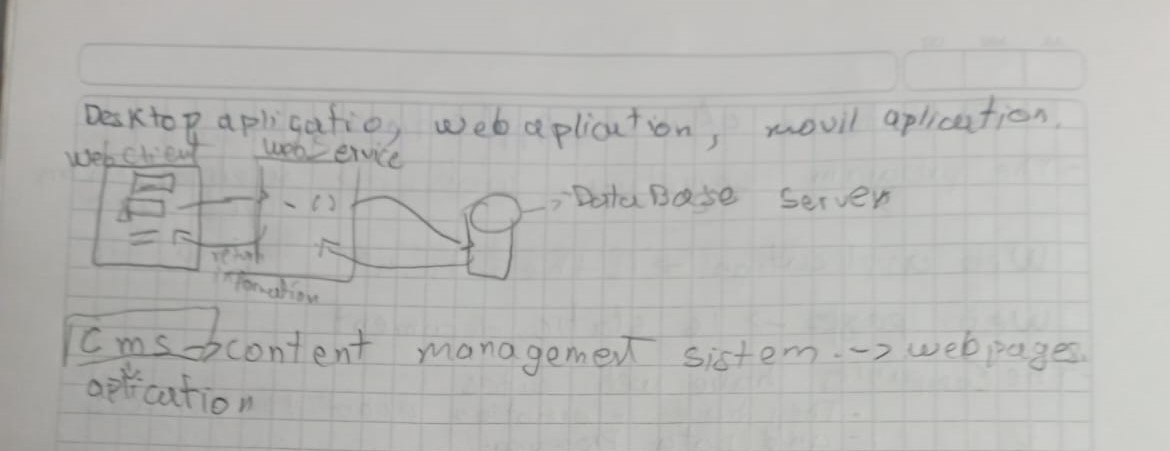 Desktop apligatio, web aplication, movil aplication.
web client web service
- ()
-> Data Base server
return
information
Cms -> content management sistem. -> web pages.
aplication